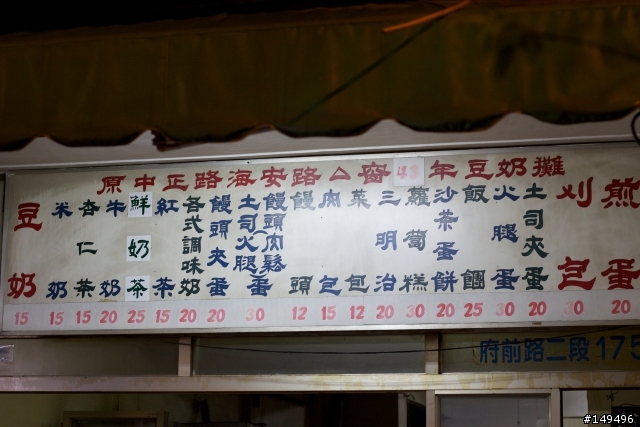 原中正路海安路窗48年豆奶攤
豆奶
米奶
杏仁茶
牛奶
鮮奶茶
紅茶
各式調味奶
饅頭夾蛋
土司(火腿
饅頭(肉鬆
蛋
饅頭
肉包
菜包
三明治
蘿蔔糕
沙茶蛋餅
飯糰
火腿蛋
土司夾蛋
刈包
煎蛋
15 15 15 20 25 15 20 20 30 12 15 12 20 30 20 25 30 20 30 20
府前路二段175
#149496